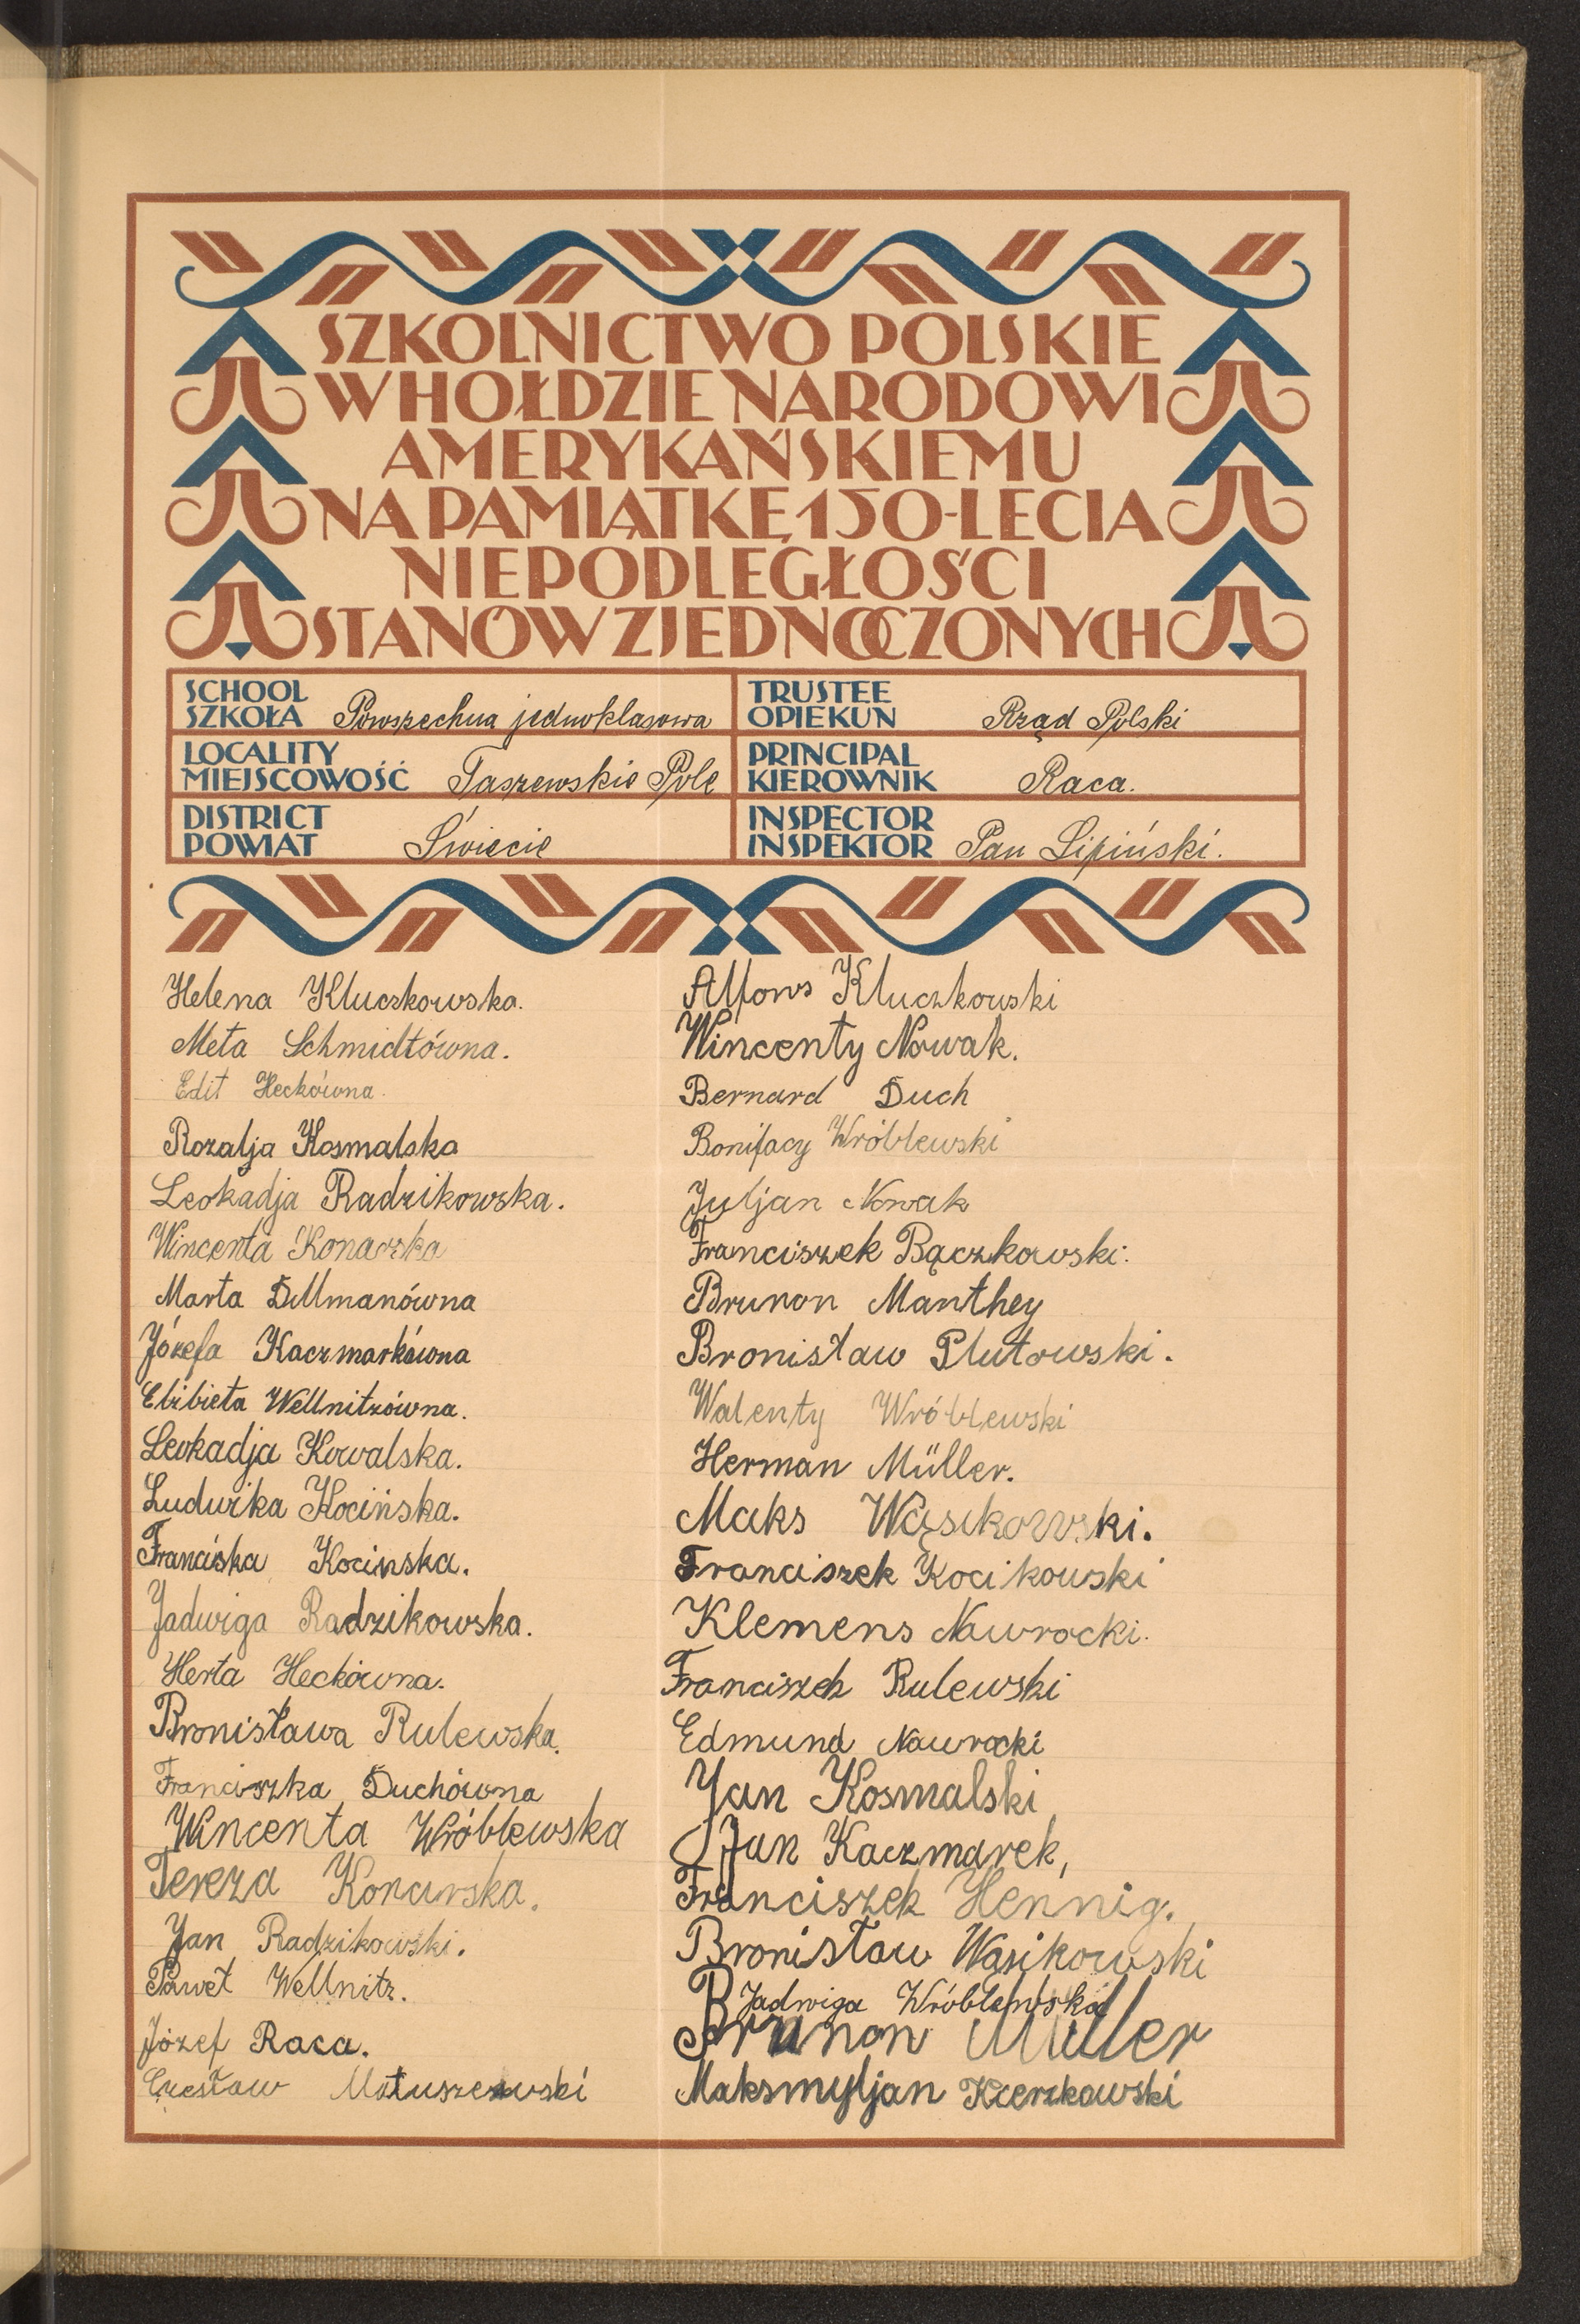 SZKOLNICTWO POLSKIE
W HOŁDZIE NARODOWI
AMERYKAŃSKIEMU
NA PAMIĄTKĘ 150-LECIA
NIEPODLEGŁOŚCI
STANÓW ZJEDNOCZONYCH
SCHOOL
SZKOŁA Powszechna jednoklasowa
TRUSTEE
OPIEKUN Rząd Polski
LOCALITY
MIEJSCOWOŚĆ Taszewskie Pole
PRINCIPAL
KIEROWNIK Raca.
DISTRICT
POWIAT Świecie
INSPECTOR
INSPEKTOR Pan Lipiński.
Helena Kluczkowska.
Meta Schmidtówna.
Edit Heckówna.
Rozalja Kosmalska
Leokadja Radzikowska.
Wincenta Konarska
Marta Dillmanówna
Józefa Kaczmarkówna
Elżbieta Wellnitzówna.
Leokadja Kowalska.
Ludwika Kocińska.
Franciska Kocinska.
Jadwiga Radzikowska.
Herta Heckówna.
Bronisława Rulewska.
Franciszka Duchówna
Wincenta Wróblewska
Tereza Konarska.
Jan Radzikowski.
Paweł Wellnitz.
Józef Raca.
Czesław Matuszewski
Alfons Kluczkowski
Wincenty Nowak.
Bernard Duch
Bonifacy Wróblewski
Juljan Nowak
Franciszek Bączkowski.
Brunon Manthey
Bronisław Plutowski.
Walenty Wróblewski
Herman Müller.
Maks Wąsikowski.
Franciszek Kocikowski
Klemens Nawrocki.
Franciszek Rulewski
Edmund Nawrocki
Jan Kosmalski
Jan Kaczmarek,
Franciszek Hennig.
Bronisław Wąsikowski
Jadwiga Wróblewska
Brunon Müller
Maksmyljan Kierzkowski